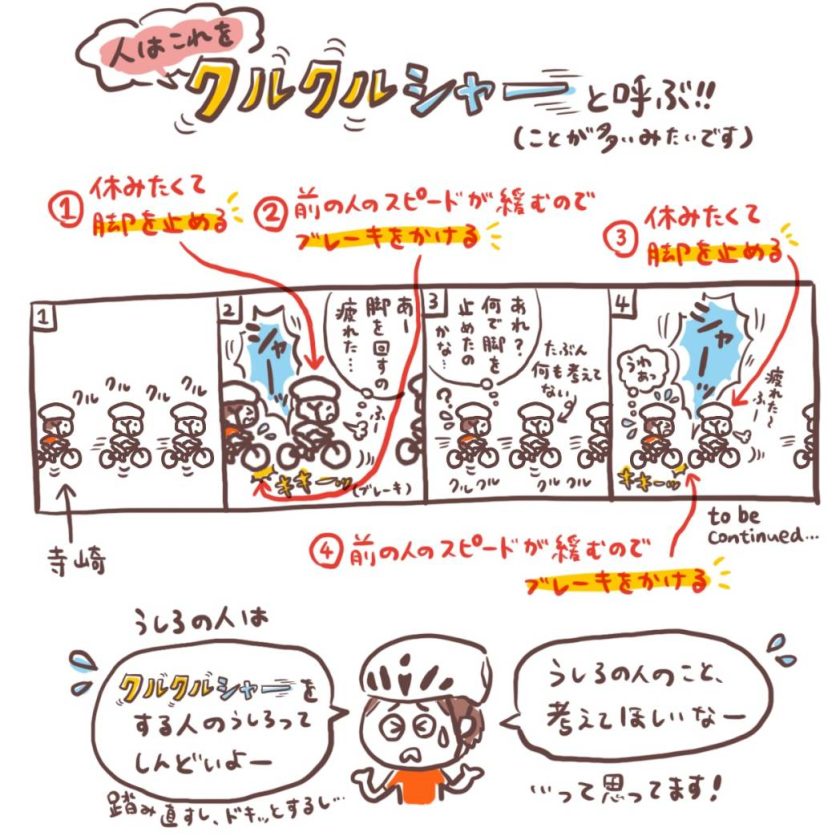 人はこれを
クルクルシャーと呼ぶ!!
(ことが多いみたいです)
① 休みたくて
脚を止める
② 前の人のスピードが緩むので
ブレーキをかける
③ 休みたくて
脚を止める
1
クル クル クル クル
寺崎
2
シャーッ
あー
脚を回すの
疲れた…
ふー
キキーッ
(ブレーキ)
3
あれ?
何で脚を
止めたの
かな…
?
たぶん
何も考えて
ない
クルクル
クルクル
4
うわ
あっ
シャーッ
疲れた〜
ふー
キキーッ
to be
continued...
④ 前の人のスピードが緩むので
ブレーキをかける
うしろの人は
クルクルシャーを
する人のうしろって
しんどいよー
踏み直すし、ドキッとするし…
うしろの人のこと、
考えてほしいなー
…って思ってます!